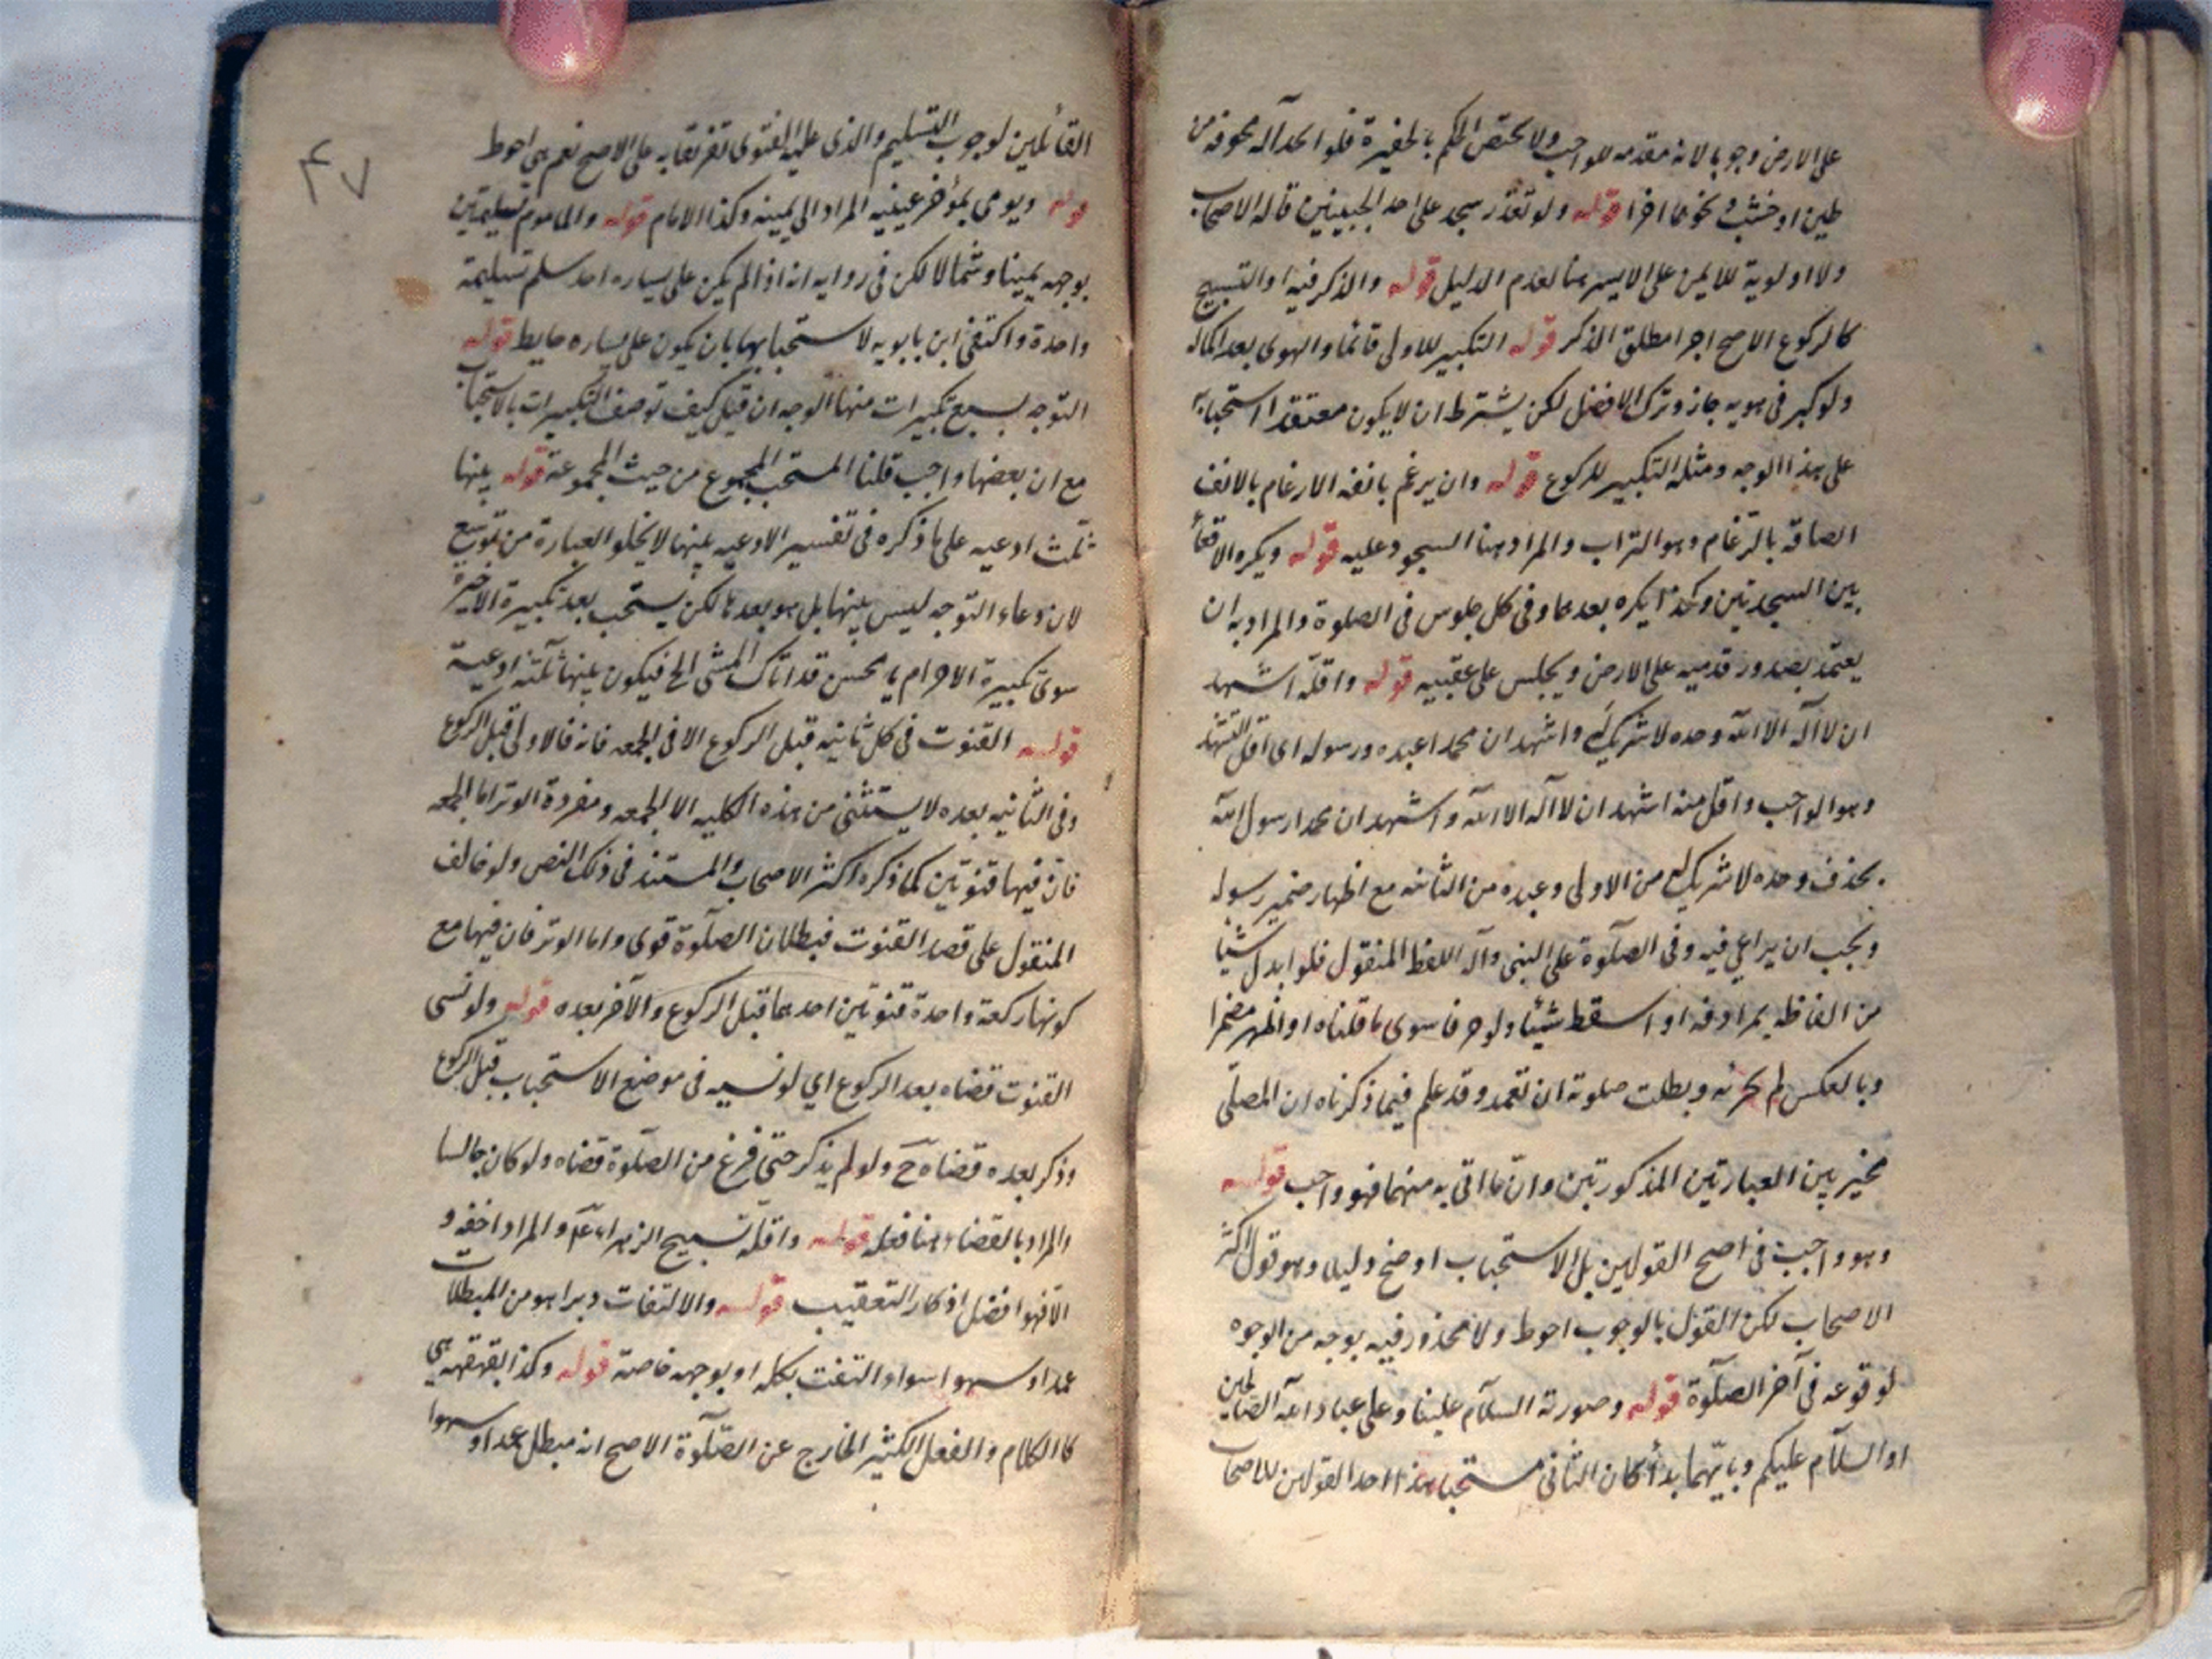 على الارض وجوبا لانه مقدمه للواجب ولا يختص الحكم بالحفيرة فلو اتخذ آلة مجوفة من
طين او خشب ونحوهما اجزا قوله ولو تعذر سجد على احد الجبينين قاله الاصحاب
ولا اولوية للايمن على الايسر هنا لعدم الدليل قوله والذكر فيه او التسبيح
كالركوع الاصح اجزا مطلق الذكر قوله التكبير للاولى قائما والهوى بعد اكماله
ولو كبر في هويه جاز وترك الافضل لكن يشترط ان لا يكون معتقدا استحبابه
على هذا الوجه ومثله التكبير للركوع قوله وان يرغم بانفه الارغام بالانف
الصاقه بالرغام وهو التراب والمراد هنا السجود عليه قوله ويكره الاقعاء
بين السجدتين وكذا يكره بعدهما وفي كل جلوس في الصلوة والمراد به ان
يعتمد بصدور قدميه على الارض ويجلس على عقبيه قوله واقله اشهد
ان لا اله الا الله وحده لا شريك له واشهد ان محمدا عبده ورسوله اى اقل التشهد
وهو الواجب واقل منه اشهد ان لا اله الا الله واشهد ان محمدا رسول الله
بحذف وحده لا شريك له من الاولى وعبده من الثانيه مع اظهار ضمير رسوله
ويجب ان يراعي فيه وفي الصلوة على النبي وآله اللفظ المنقول فلو ابدل شيئا
من الفاظه بمرادفه او اسقط شيئا ولو حرفا سوى ما قلناه او اظهر مضمرا
وبالعكس لم يجزئه وبطلت صلوته ان تعمد وقد علم فيما ذكرناه ان المصلى
مخير بين العبارتين المذكورتين وان ما اتى به منهما فهو واجب قوله
وهو واجب في اصح القولين بل الاستحباب اوضح دليلا وهو قول اكثر
الاصحاب لكن القول بالوجوب احوط ولا محذور فيه بوجه من الوجوه
لوقوعه في آخر الصلوة قوله وصورته السلام علينا وعلى عباد الله الصالحين
او السلام عليكم وبايهما بدأ كان الثاني مستحبا هذا احد القولين للاصحاب
٤٧
القائلين لوجوب التسليم والذى عليه الفتوى تفريقا به على الاصح نعم هي احوط
قوله ويومى بمؤخر عينيه المراد الى يمينه وكذا الامام قوله والماموم تسليمتين
بوجهه يمينا وشمالا لكن في روايه انه اذا لم يكن على يساره احد سلم تسليمة
واحدة واكتفى ابن بابويه لاستحبابها بان يكون على يساره حايط قوله
التوجه بسبع تكبيرات منها الوجه ان قيل كيف توصف التكبيرات بالاستحباب
مع ان بعضها واجب قلنا المستحب المجموع من حيث المجموعة قوله بينها
ثلث ادعيه على ما ذكره في تفسير الادعيه بينها لا يخلو العبارة من توسع
لان دعاء التوجه ليس بينها بل هو بعدها لكن يستحب بعد تكبيرة الاخيرة
سوى تكبيرة الاحرام يا محسن قد اتاك المسئى الخ فيكون بينها ثلثة ادعية
قوله القنوت في كل ثانيه قبل الركوع الا في الجمعه فانه فالاولى قبل الركوع
وفي الثانيه بعده لا يستثنى من هذه الكليه الا الجمعه ومفردة الوتر اما الجمعه
فان فيها قنوتين كما ذكره اكثر الاصحاب والمستند في ذلك النص ولو خالف
المنقول على قصد القنوت فبطلان الصلوة قوى واما الوتر فان فيها مع
كونها ركعة واحدة قنوتين احدهما قبل الركوع والآخر بعده قوله ولو نسى
القنوت قضاه بعد الركوع اي لو نسيه في موضع الاستحباب قبل الركوع
وذكر بعده قضاه ح ولو لم يذكر حتى فرغ من الصلوة قضاه ولو كان جالسا
والمراد بالقضاء هنا فعله قوله واقله تسبيح الزهراء ع والمراد اخفه و
الا فهو افضل اذكار التعقيب قوله والالتفات دبرا هو من المبطلات
عمدا وسهوا سواء التفت بكله او بوجهه خاصة قوله وكذا القهقهه هي
كالكلام والفعل الكثير الخارج عن الصلوة الاصح انه مبطل عمدا وسهوا